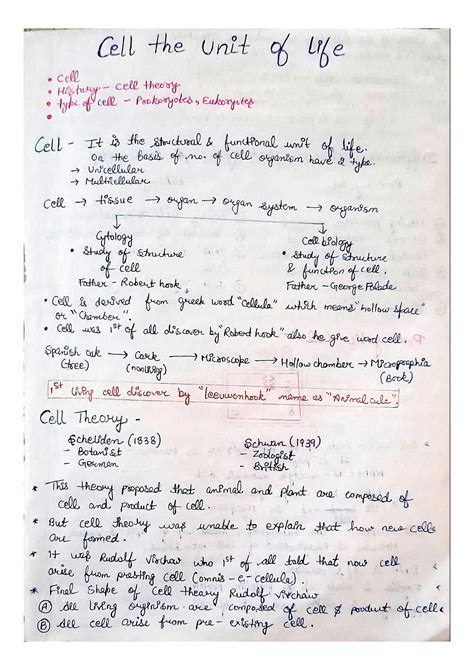 Cell the Unit of life
• Cell
• History - Cell theory
• type of cell - Prokaryotes, Eukaryotes
•
Cell - It is the structural & functional unit of life.
On the Basis of no. of cell organism have 2 type.
→ Unicellular
→ Multicellular
Cell → tissue → organ → organ system → organism
Cytology
• Study of structure
of cell
Father - Robert hook
Cell biology
• Study of structure
& function of cell.
Father - George Palade
• Cell is derived from greek word "Cellula" which means "hollow space"
or "Chamber".
• Cell was 1st of all discover by "Robert hook" also he give word cell.
Spanish oak → Cork → Microscope → Hollow chamber → Micrographia
(tree) (nonliving) (Book)
1st living cell discover by "leeuwenhook" name as "Animalcule".
Cell Theory -
Scheliden (1838)
- Botanist
- German
Schwan (1939)
- Zoologist
- British
* This theory proposed that animal and plant are composed of
cell and product of cell.
* But cell theory was unable to explain that how new cells
are formed.
* It was Rudolf Virchow who 1st of all told that new cell
arise from preexisting cell (omnis-e-cellula).
* Final Shape of Cell theory Rudolf Virchow
A All living orginism are composed of cell & product of cell.
B All cell arise from pre-existing cell.